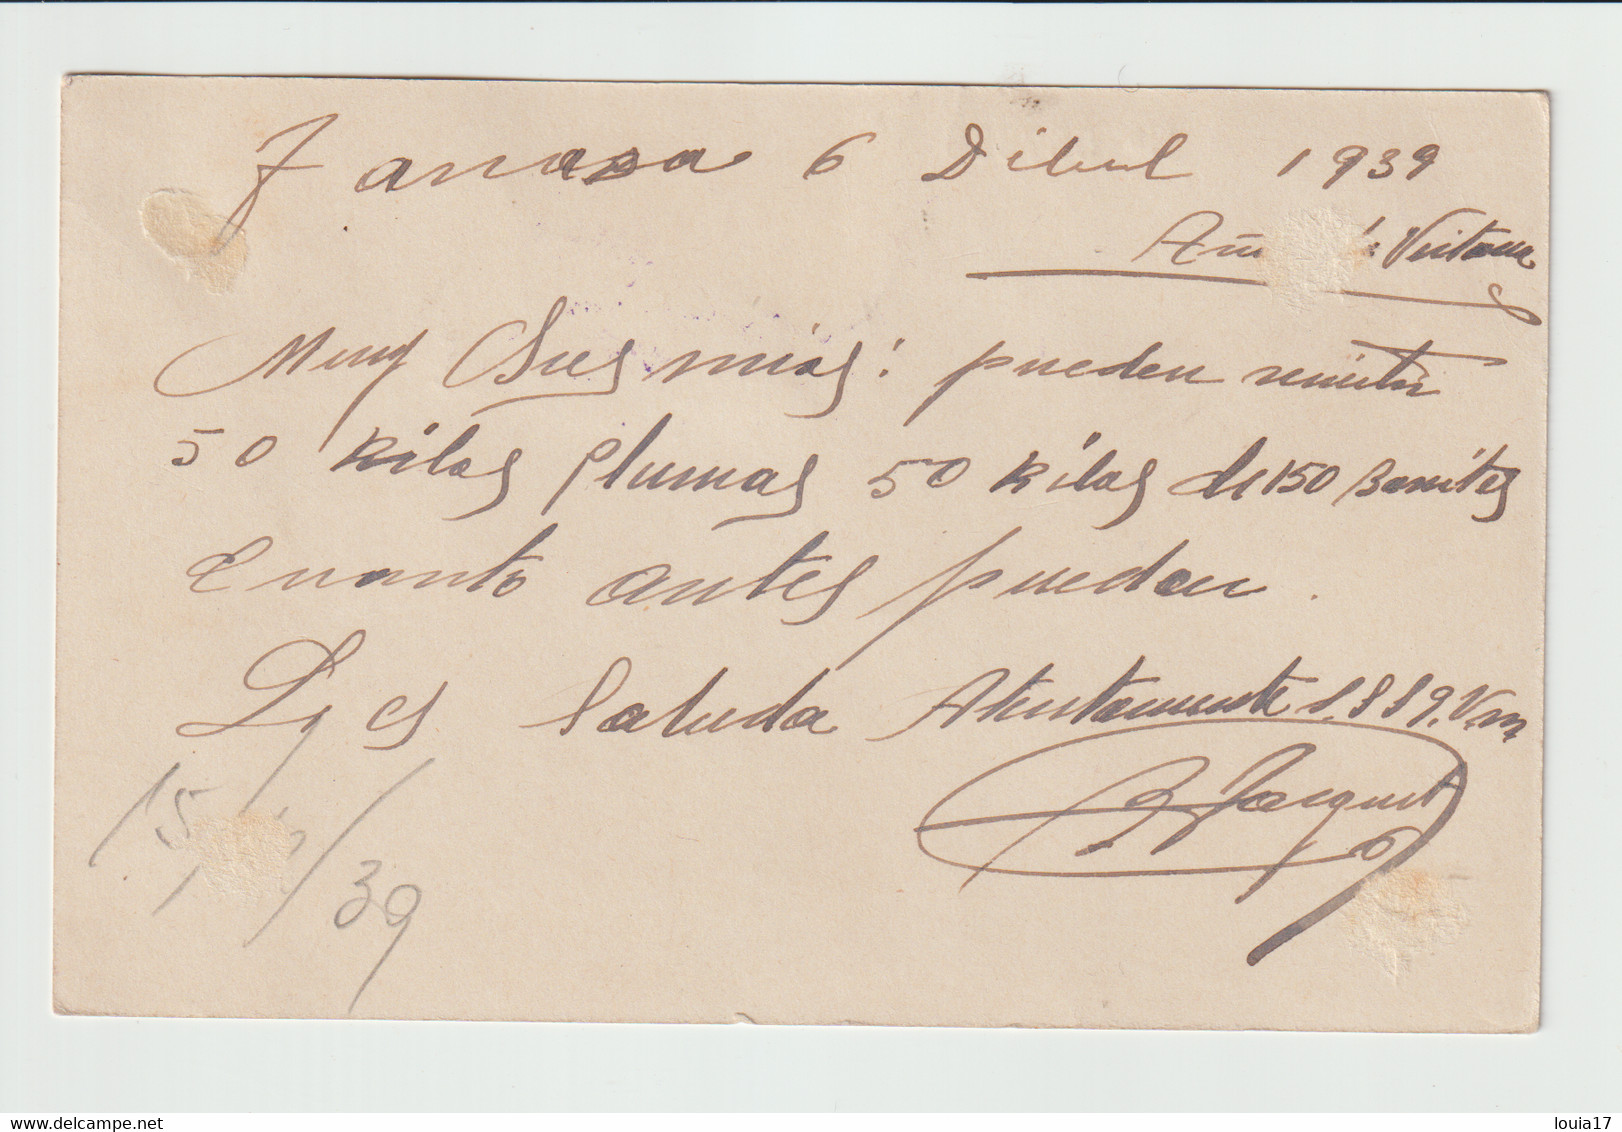 6 Dibul 1939
Victoria
Muy Sres mios: pueden remitir
50 Kilos plumas 50 Kilos de 150 Bonites
Cuanto antes puedan.
Les Saluda Atentamente s.s.s q. V. m
Jacquet
15/ /39
delcampe.net
louia17